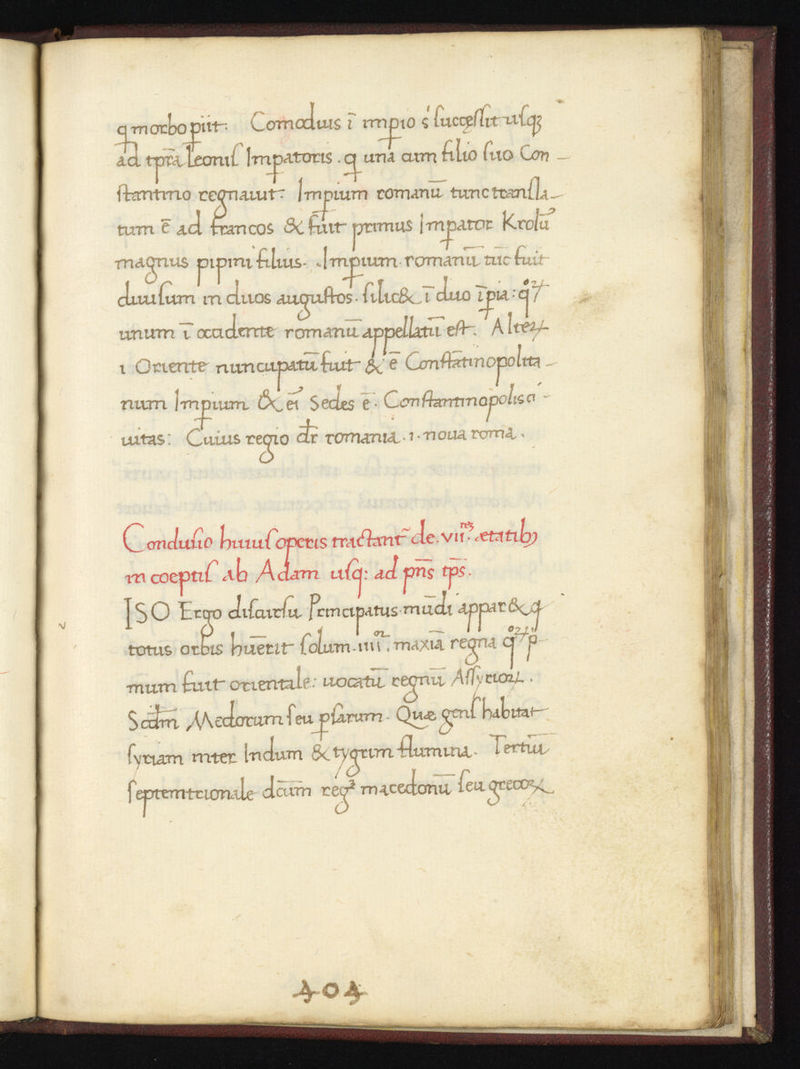 q morbo piit. Comodus ī impio s̓ succęssit usq;
ad tpra Leonis Impatoris . q una cum filio suo Con-
stantino regnauit: Impium romanū tunc transla-
tum ē ad francos & fuit primus Impator Krolus
magnus pipini filius. Impium romanū tūc fuit
diuisum in duos augustos. silic& ī duo īpia: qꝝ
unum ī occidente romanū appellatū est. Alteꝝ
ı Oriente nuncupatū fuit & ē Constātinopolita-
num Impium & eı̓ Sedes ē. Constantinopolis ci-
uitas: Cuius regio dr̄ romania .i. noua roma.
Conclusio huius operis tractant̄ de .vii. ætatib;
in coeptis ab Adam usq: ad pn̄s tp̄s.
ISO Ergo discursu Principatus mūdi appar& q
totus orbis hūerit solum .iiii. maxīa regna qꝝ p
mum fuit orientale: uocatū regnū Assyrioꝝ.
Scdm̄ Medorum seu psarum. Quæ gens habitat
syriam inter Indum & tygrim flumina. Tertiū
septemtrionale dcūm regꝫ macedonū seu grecoꝝ
404